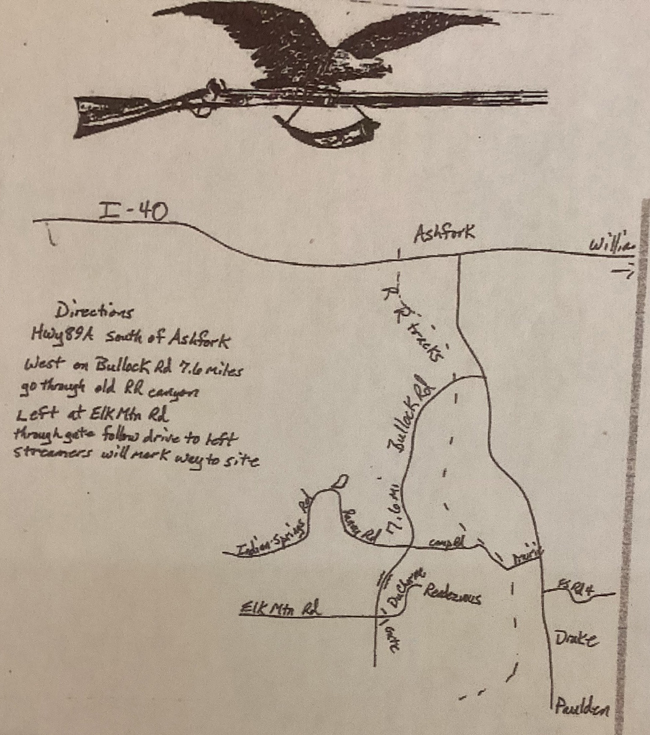 I-40
Ashfork
Willia
RR tracks
Directions
Hwy 89A South of Ashfork
West on Bullock Rd 7.6 miles
go through old RR canyon
Left at Elk Mtn Rd
through gate follow drive to left
streamers will mark way to site
Bullock Rd
7.6 Mi
Indian Springs Rd
Rd
Camp Rd
Rendezvous
Elk Mtn Rd
Gate
FS Rd 4
Drake
Paulden